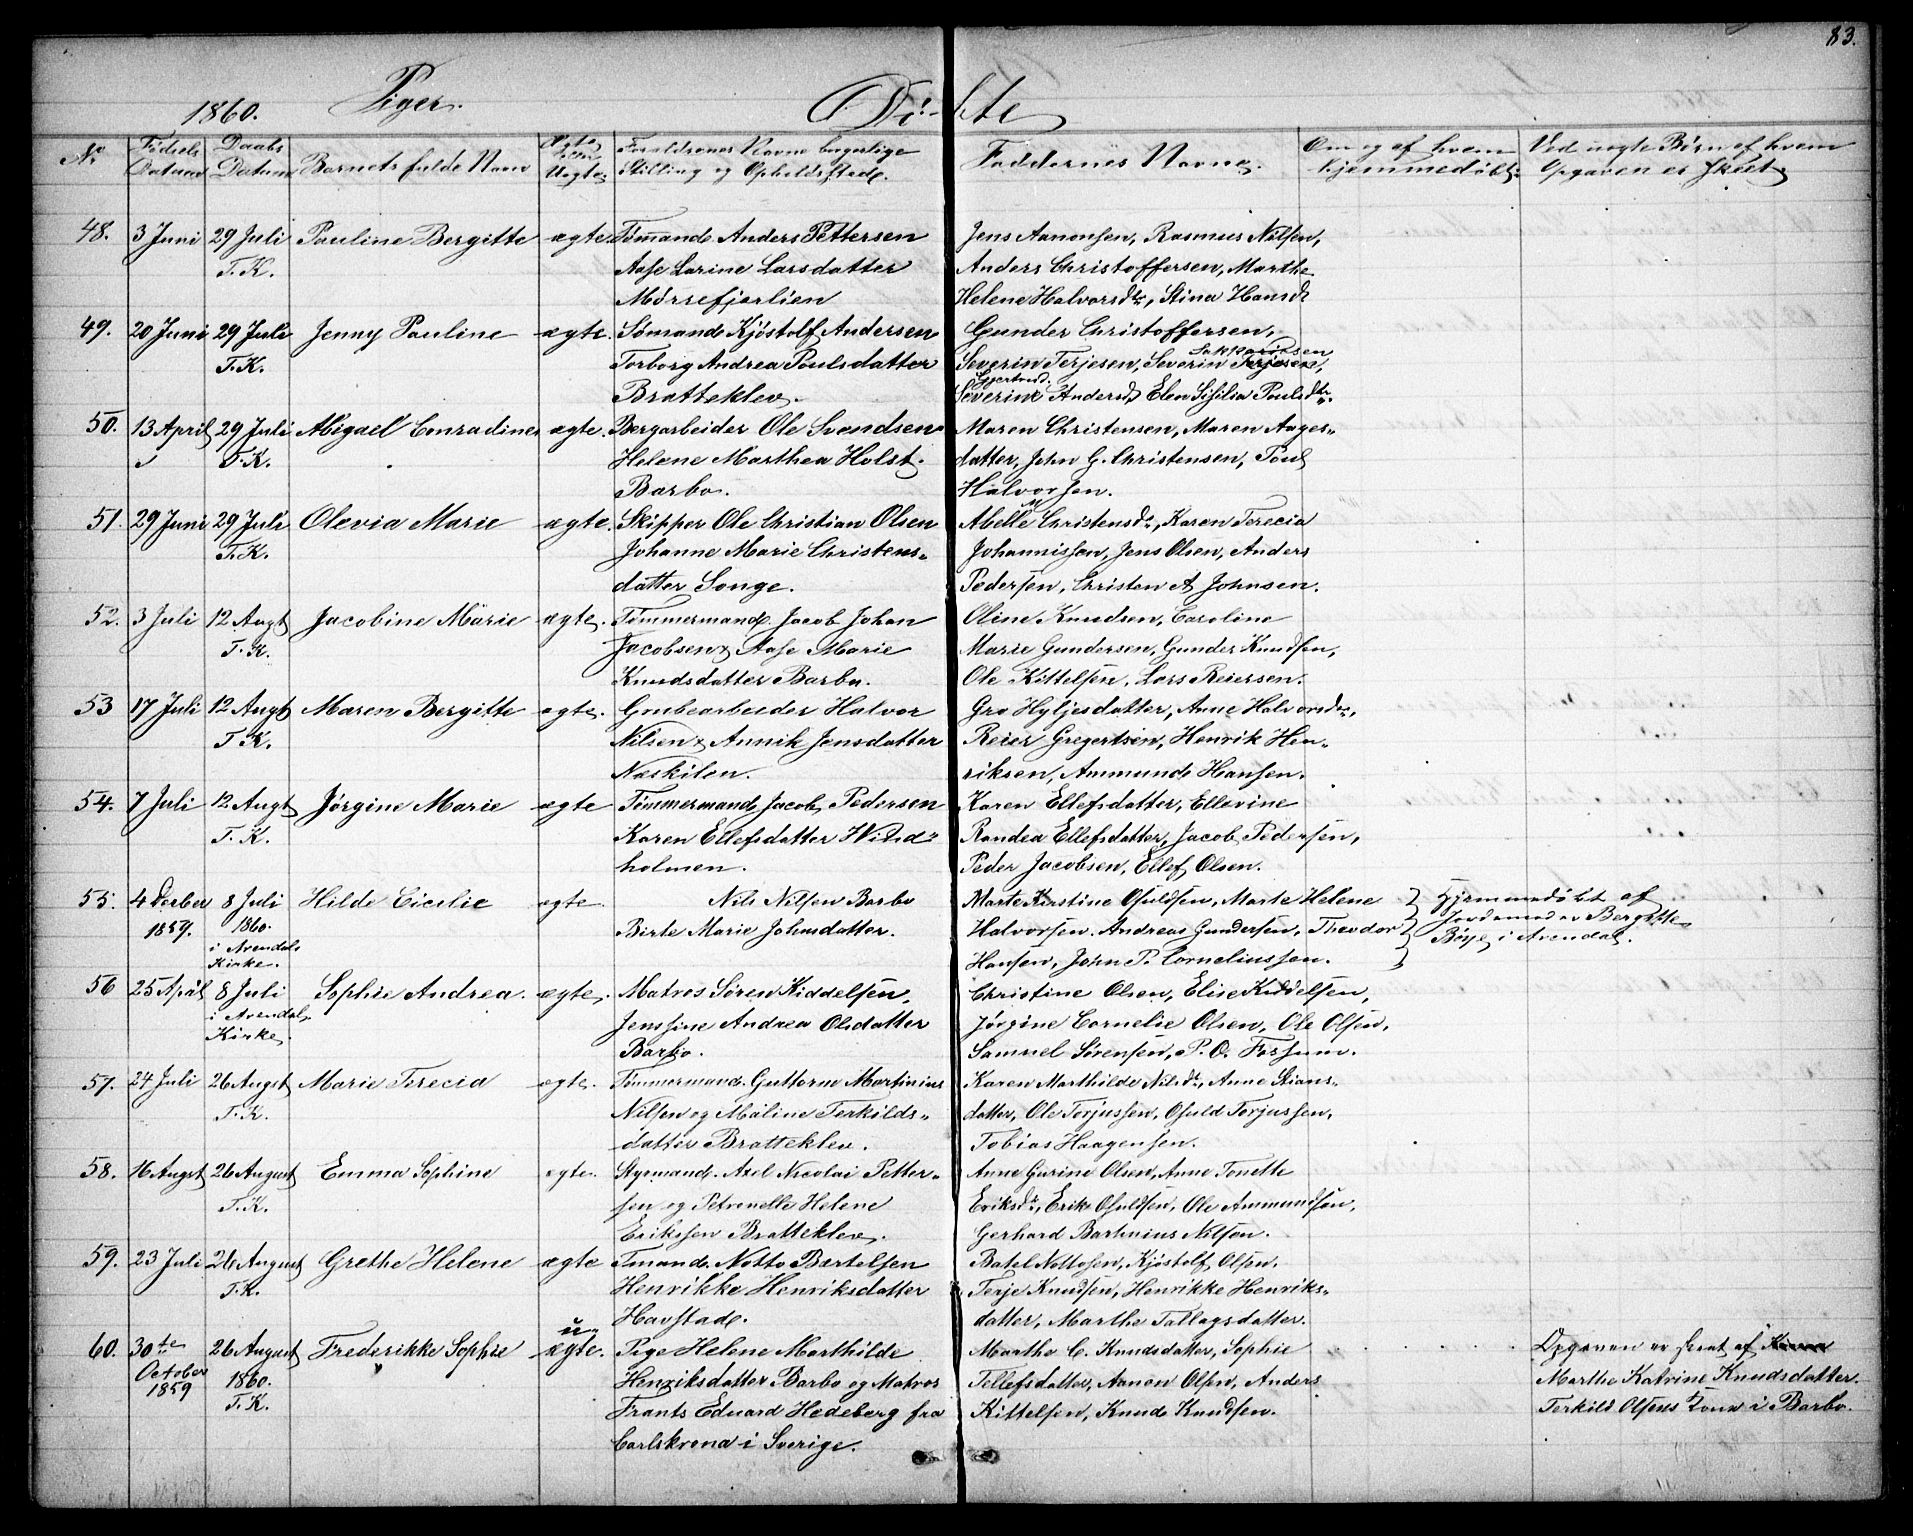 83.
1860. Piger. Døbte
No Fødsels Datum Daabs Datum Barnets fulde Navn Ægte eller Uægte Forældrenes Navne borgerlige Stilling og Opholdssted. Faddernes Navne. Om og af hvem hjemmedøbt. Ved uægte Børn af hvem Opgaven er skeet
48. 3 Juni 29 Juli Pauline Bergitte ægte Sømand Anders Pettersen Jens Aanonsen, Rasmus Nilsen,
T.K. Aase Larine Larsdatter Anders Christoffersen, Marthe
Mørsefjerlien Helene Halvorsdtr, Stina Hansdt
49. 20 Juni 29 Juli Jenny Pauline ægte. Sømand Kjøstolf Andersen Gunder Christoffersen,
T.K. Torborg Andrea Poulsdatter Severin Terjesen, Severin Terjesen,
Bratteklev. Severine Andersd, Elen Sisilia Poulsdtr.
50. 13 April 29 Juli Abigael Conradine ægte. Bergarbeider Ole Svendsen Maren Christensen, Maren Aagers-
T.K. Helene Marthea Holst. datter, John G. Christensen, Poul
Barbo. Halvorsen.
51. 29 Juni 29 Juli Olevia Marie ægte. Skipper Ole Christian Olsen Abelle M Christensd., Karen Terecia
T.K. Johanne Marie Christens- Johannissen, Jens Olsen, Anders
datter Songe. Pedersen, Christen A Johnsen.
52. 3 Juli 12 Augt Jacobine Marie ægte. Tømmermand Jacob Johan Oline Knudsen, Caroline
T.K. Jacobsen & Aase Marie Marie Gundersen, Gunder Knudsen,
Knudsdatter Barbo. Ole Kittelsen, Lars Reiersen.
53 17 Juli 12 Augt Maren Bergitte ægte. Grubearbeider Halvor Gro Hyljesdatter, Anne Halvorsdr,
T.K. Nilsen & Annik Jensdatter Reier Gregertsen, Henrik Hen-
Neskilen. riksen, Ammund Hansen.
54. 7 Juli 12 Augt Jørgine Marie ægte Tømmermand Jacob Pedersen Karen Ellefsdatter, Ellevine
T.K. Karen Ellefsdatter Hvids- Randea Ellefsdatter, Jacob Pedersen,
holmen. Peder Jacobsen, Ellef Olsen.
55. 4 Decber 8 Juli Hilde Cicilie ægte. Nils Nilsen Barbo Marte Kirstine Osuldsen, Marte Helene Hjemmedøbt af
1859. 1860. Birte Marie Johnsdatter. Halvorsen. Andreas Gundersen, Theodor Jordemoder Bergitte
i Arendals Kirke. Hansen, John P. Corneliussen. i Arendal.
56 25 April 8 Juli Sophie Andrea. ægte. Matros Søren Kiddelsen, Christine Olsen, Elise Kiddelsen,
i Arendal Jenssine Andrea Olsdatter Jørgine Cornelie Olsen, Ole Olsen,
Kirke. Barbo. Samuel Sørensen, P. O. Fossum.
57. 24 Juli 26 Augst Marie Terecia ægte. Tømmermand Guttorm Martinius Karen Marthilde Nilsdt, Anne Stians-
T.K. Nilsen og Maline Terkilds- datter, Ole Torjussen, Osuld Torjussen,
datter Bratteklev. Tobias Haagensen.
58. 16 Augst 26 August Emma Sophine ægte. Styrmand Axel Nicolai Petter- Anne Gurine Olsen, Anne Tonette
T.K. sen og Petronelle Helene Eriksdt, Erik Osuldsen, Ole Ammundsen,
Erikssen Bratteklev. Gerhard Barhnius Nilsen.
59. 23 Juli 26 August Grethe Helene ægte Tmand Notto Bertelsen Batel Nottosen, Kjøstolf Olsen,
T.K. Henrikke Henriksdatter Terje Knudsen, Henrikke Henriks-
Havstad. datter, Marthe Tallagsdatter.
60. 30te 26 August Frederikke Sophie u-ægte. Pige Helene Marthilde Marthe C. Knudsdatter, Sophie Opgaven er skeet af
October 1860. Henriksdatter Barbo og Matros Tellefsdatter, Aanon Olsen, Anders Marthe Katrine Knudsdatter
1859 T.K. Frants Eduard Hedeberg fra Kittelsen, Knud Knudsen. Terkild Olsens Kone i Barbo.
Carlskrona i Sverige.